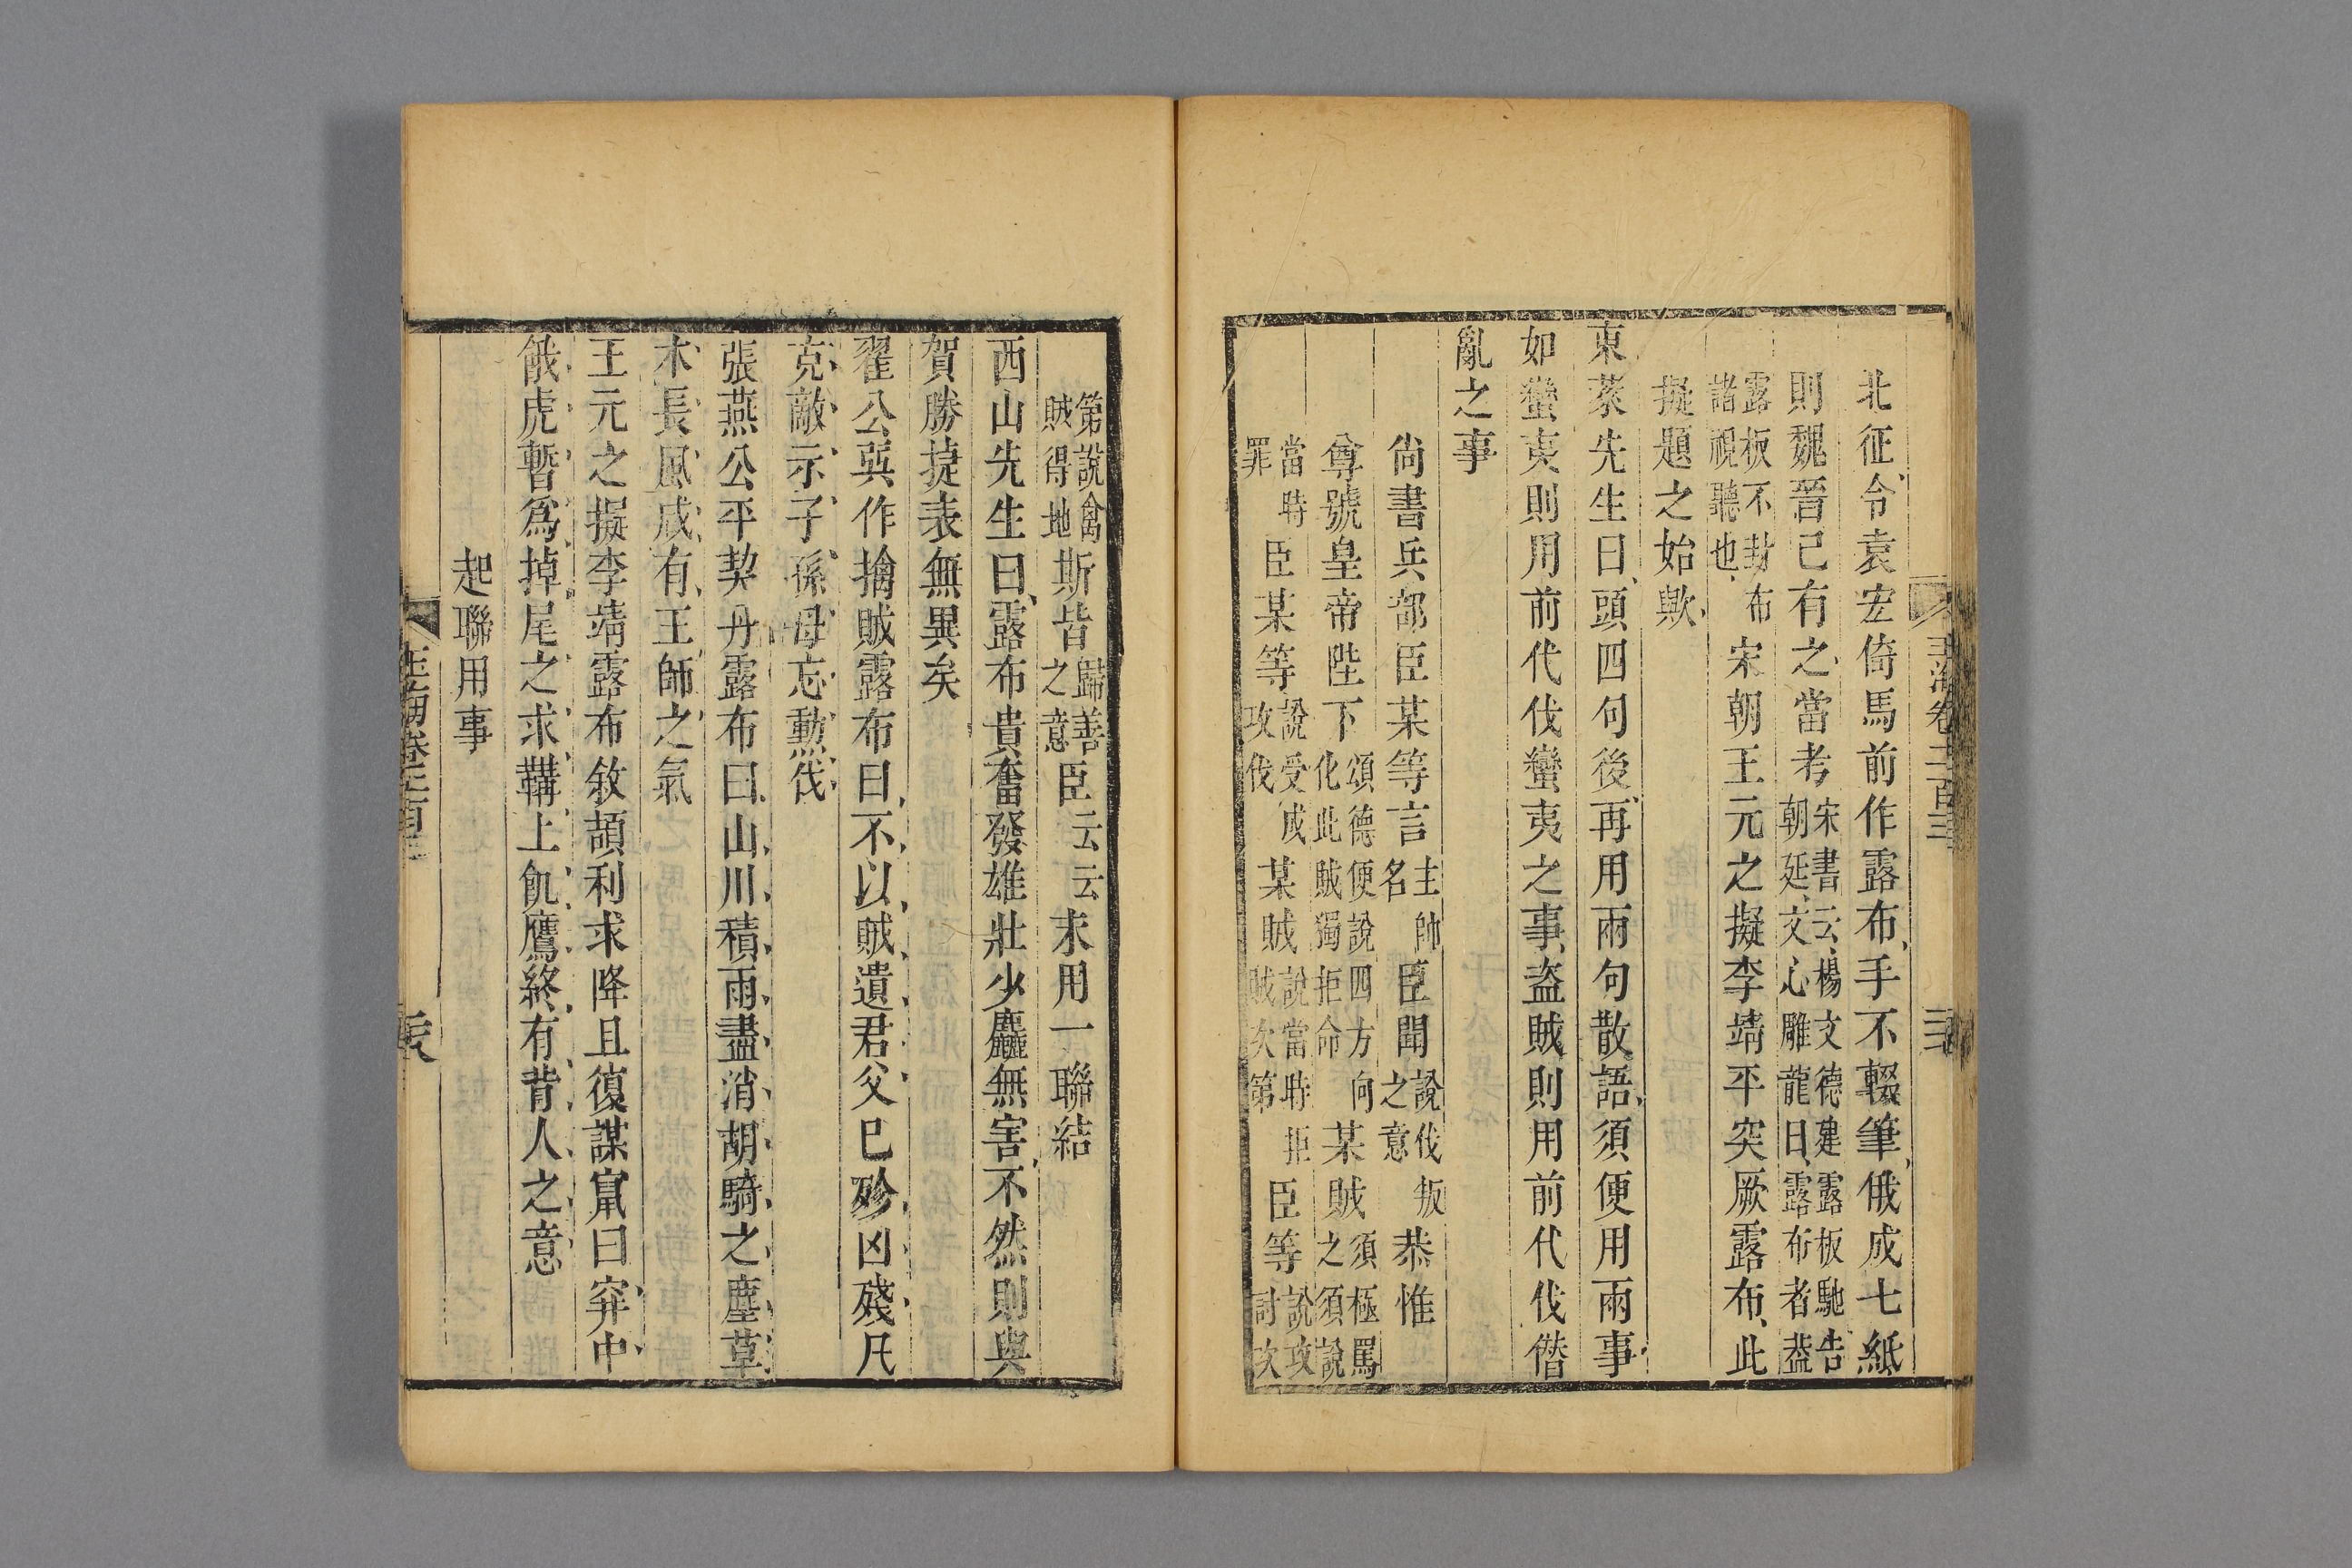 玉海卷二百三
北征令袁宏倚馬前作露布手不輟筆俄成七紙
則魏晉已有之當考宋書云楊文德建露板馳告朝廷文心雕龍曰露布者蓋
露板不封布諸視聽也宋朝王元之擬李靖平突厥露布此
擬題之始歟
東萊先生曰頭四句後再用兩句散語須便用兩事
如蠻夷則用前代伐蠻夷之事盜賊則用前代伐僭
亂之事
尚書兵部臣某等言主帥名臣聞說伐叛之意恭惟
尊號皇帝陛下頌德便說四方向化此賊獨拒命某賊須極罵之須說
當時罪臣某等說受成攻伐某賊說當時拒賊次第臣等說攻討次
第說禽賊得地斯皆歸善之意臣云云末用一聯結
西山先生曰露布貴奮發雄壯少麤無害不然則與
賀勝捷表無異矣
翟公巽作擒賊露布曰不以賊遺君父已殄凶殘凡
克敵示子孫毋忘勲伐
張燕公平契丹露布曰山川積雨盡消胡騎之塵草
木長風咸有王師之氣
王元之擬李靖露布敘頡利求降且復謀竄曰穽中
餓虎暫爲掉尾之求韝上飢鷹終有背人之意
起聯用事